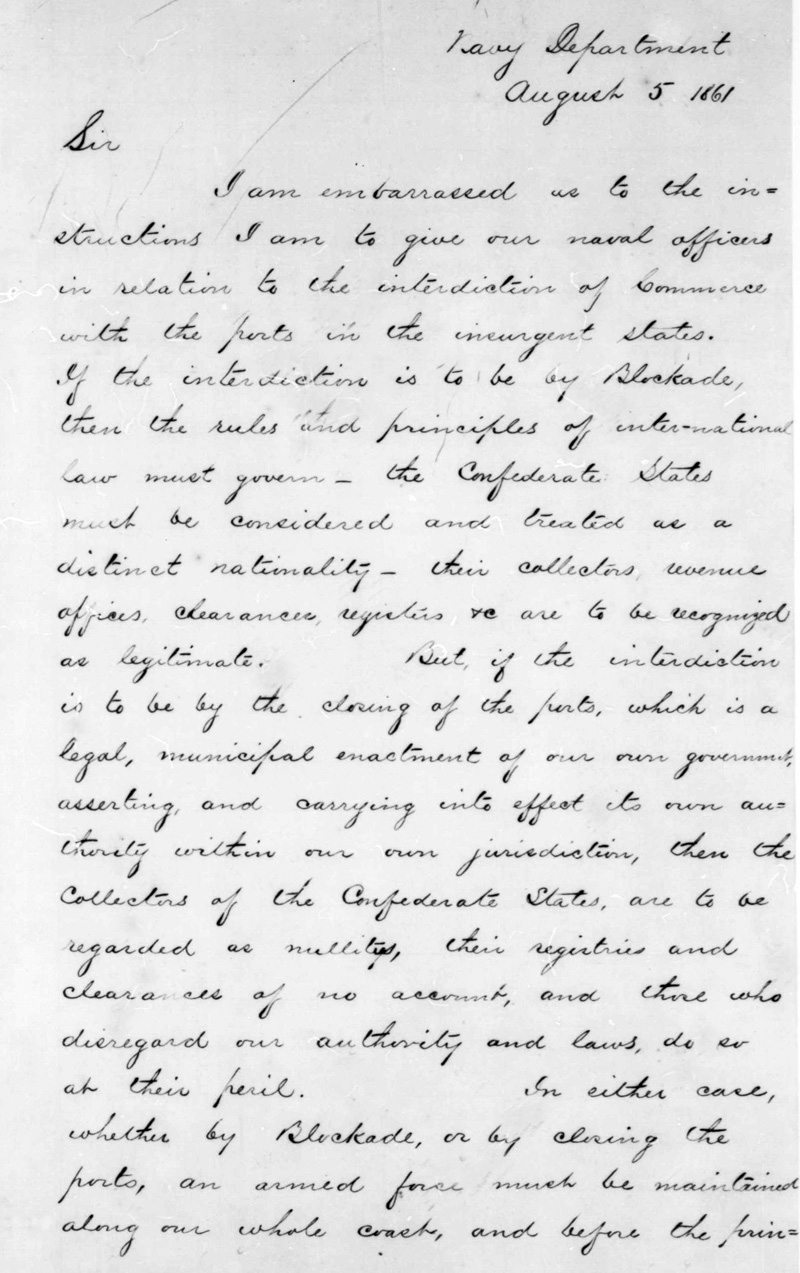 Navy Department
August 5 1861
Sir
I am embarrassed as to the in=
structions I am to give our naval officers
in relation to the interdiction of Commerce
with the ports in the insurgent states.
If the interdiction is to be by Blockade,
then the rules and principles of inter-national
law must govern – the Confederate States
must be considered and treated as a
distinct nationality – their collectors, revenue
offices, clearances, registers &c are to be recognized
as legitimate. But, if the interdiction
is to be by the closing of the ports, which is a
legal, municipal enactment of our own government,
asserting, and carrying into effect its own au=
thority within our own jurisdiction, then the
Collectors of the Confederate States, are to be
regarded as nullitys, their registries and
clearances of no account, and those who
disregard our authority and laws, do so
at their peril. In either case,
whether by Blockade, or by closing the
ports, an armed force must be maintained
along our whole coast, and before the prin=